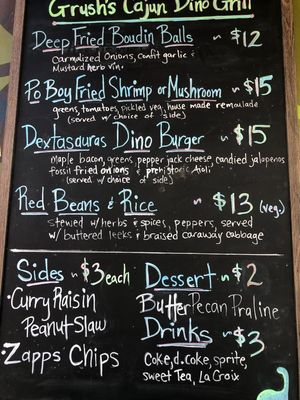 Grush's Cajun Dino Grill
Deep Fried Boudin Balls ~ $12
Carmalized Onions, Confit garlic &
Mustard herb vin.
Po Boy Fried Shrimp or Mushroom ~ $15
greens, tomatoes, pickled veg, house made remoulade
(served w/ choice of side)
Dextasauras Dino Burger ~ $15
Maple bacon, greens, pepper jack cheese, candied jalapenos
fossil fried onions & prehistoric Aioli
(served w/ choice of side)
Red Beans & Rice ~ $13 (veg.)
stewed w/ herbs & spices, peppers, served
w/ buttered leeks & braised caraway cabbage
Sides ~ $3 each
• Curry Raisin
Peanut-Slaw
• Zapps Chips
Dessert ~ $2
Butter Pecan Praline
Drinks ~ $3
Coke, d. coke, sprite,
sweet Tea, La Croix